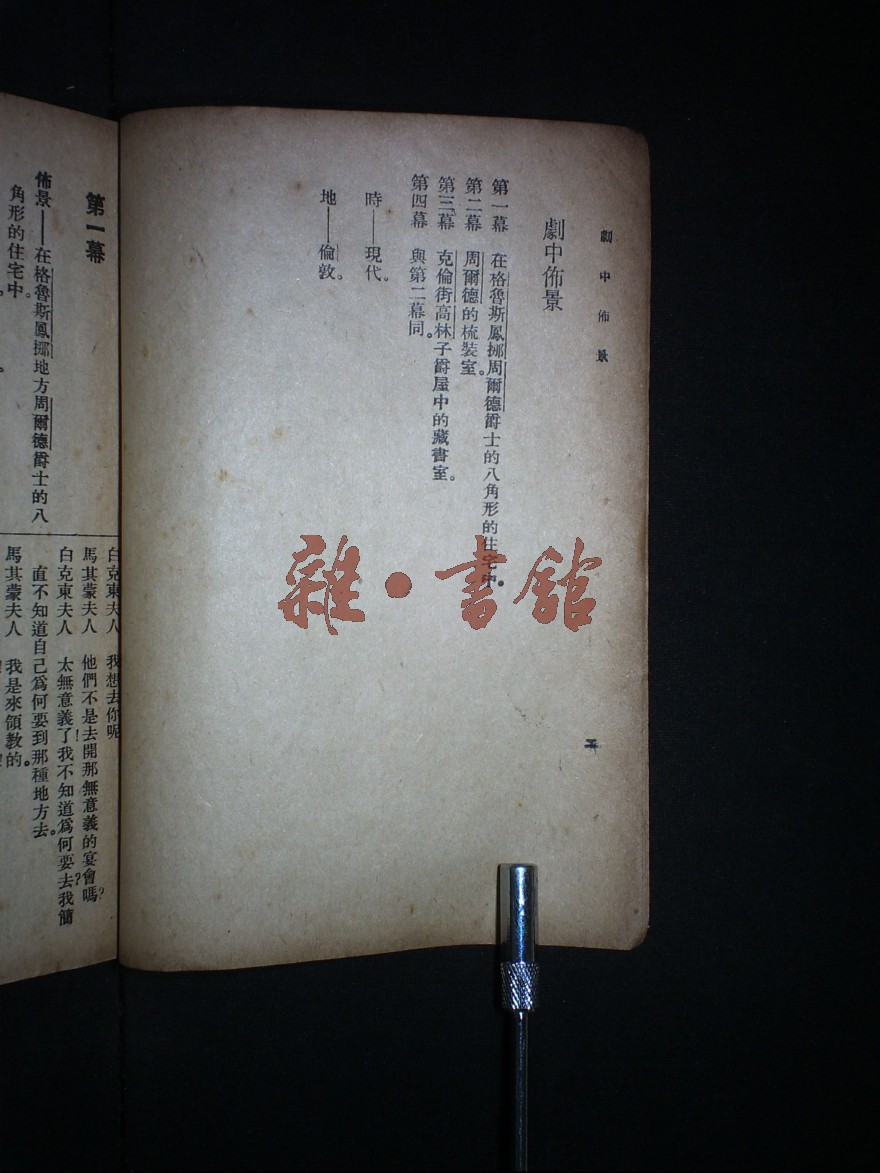 劇中佈景
劇中佈景
第一幕　在格魯斯鳳挪周爾德爵士的八角形的住宅中。
第二幕　周爾德的梳裝室。
第三幕　克倫街高林子爵屋中的藏書室。
第四幕　與第二幕同。
時——現代。
地——倫敦。
第一幕
佈景——在格魯斯鳳挪地方周爾德爵士的八
角形的住宅中。
白克東夫人　我想去你呢
馬其蒙夫人　他們不是去開那無意義的宴會嗎？
白克東夫人　太無意義了！我不知道爲何要去？我簡
直不知道自己爲何要到那種地方去。
馬其蒙夫人　我是來領教的。
雜·書館